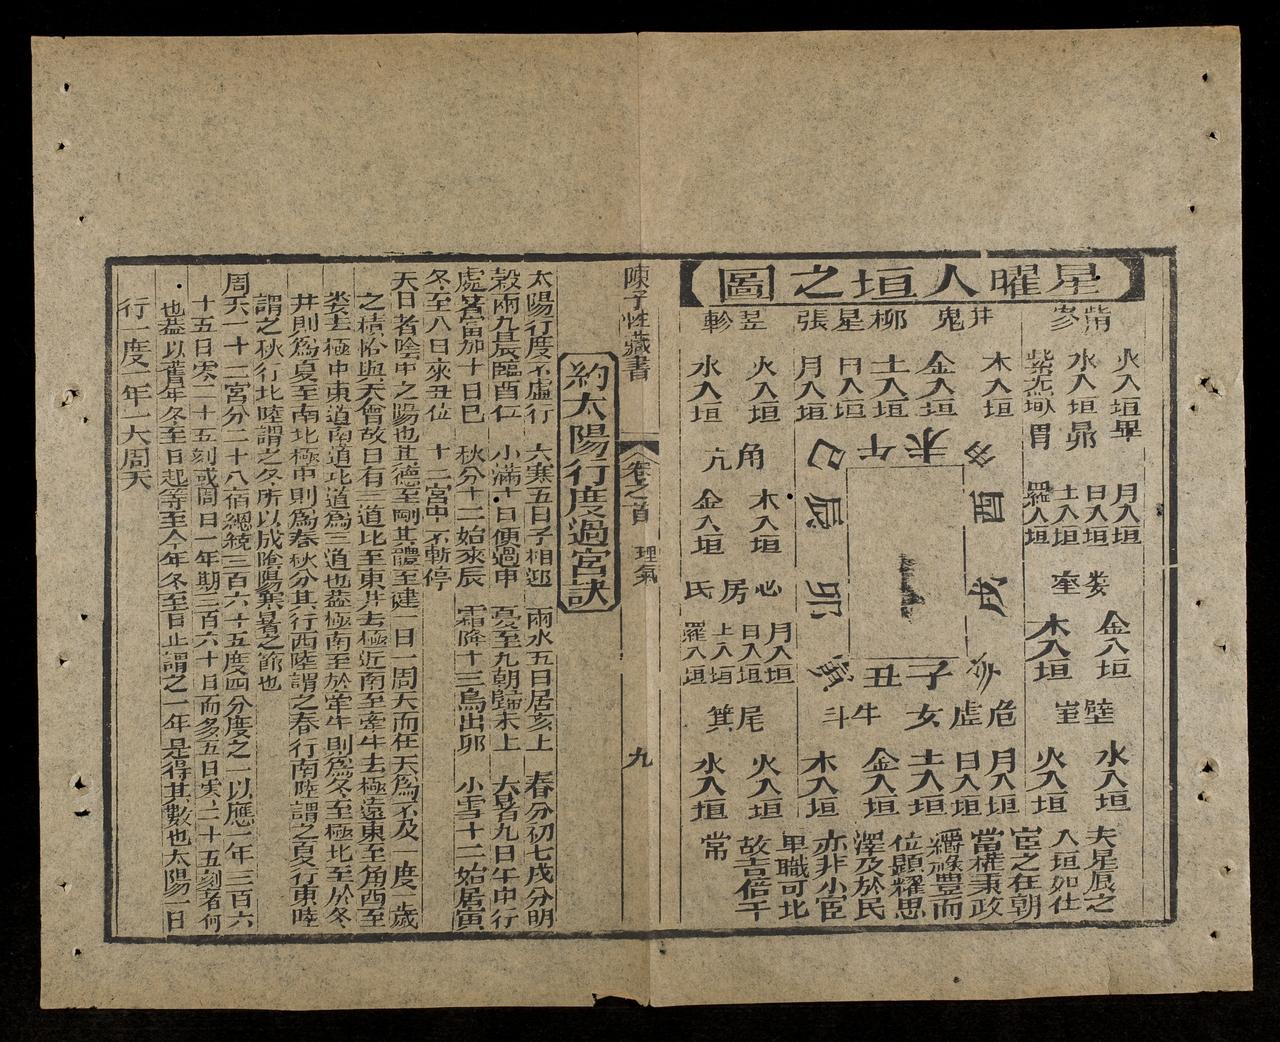 星曜入垣之圖
觜參
井鬼
柳星張
翌軫
火入垣畢
水入垣昴
紫炁入垣胃
木入垣
金入垣
土入垣
日入垣
月入垣
火入垣
水入垣
申
未
午
巳
角亢
月入垣
日入垣
土入垣
羅入垣
酉
辰
木入垣
金入垣
婁奎
戌
卯
心房氐
金入垣
木入垣
亥
子
丑
寅
月入垣
日入垣
土入垣
羅入垣
壁室
危虛女
牛斗
尾箕
水入垣
火入垣
月入垣
日入垣
土入垣
金入垣
木入垣
火入垣
水入垣
夫星辰之
入垣如仕
宦之在朝
當權秉政
爵祿豐而
位顯耀思
澤及於民
亦非小宦
卑職可比
故吉倍于
常
陳子性藏書
卷之首
理氣
九
約太陽行度過宮訣
太陽行度不虛行　大寒五日子相迎　雨水五日居亥上　春分初七戌分明
穀雨九晨臨酉位　小滿十日便過申　夏至九朝歸未上　大暑九日午中行
處暑當加十日巳　秋分十二始來辰　霜降十三烏出卯　小雪十二始居寅
冬至八日來丑位　十二宮中不暫停
天日者陰中之陽也其德至剛其體至健一日一周天而在天爲不及一度一歲
之積恰與天會故日有三道比至東井去極近南至牽牛去極遠東至角西至
婁去極中東道南道北道爲三道也蓋極南至於牽牛則爲冬至極北至於冬
井則爲夏至南北極中則爲春秋分其行西陸謂之春行南陸謂之夏行東陸
謂之秋行北陸謂之冬所以成陰陽寒暑之節也
周天一十二宮分二十八宿總繞三百六十五度四分度之一以應一年三百六
十五日零二十五刻或周日一年期三百六十日而多五日零二十五刻者何
也蓋以舊年冬至日起筭至今年冬至日止謂之一年是得其數也太陽一日
行一度一年一大周天